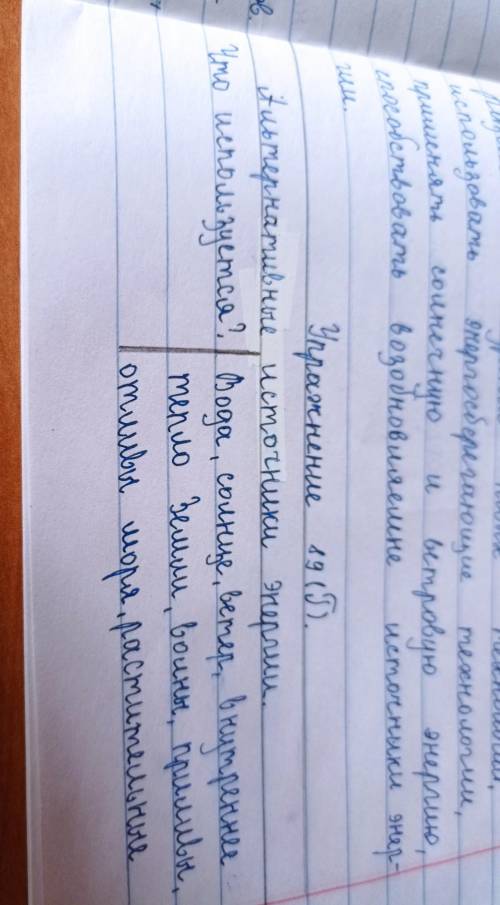 использовать энергосберегающие технологии,
применять солнечную и ветровую энергию,
способствовать возобновляемые источники энер-
гии.
Упражнение 19(Б).
Альтернативные источники энергии.
Что используется? Вода, солнце, ветер, внутреннее
тепло Земли, волны, приливы,
отливы моря, растительные